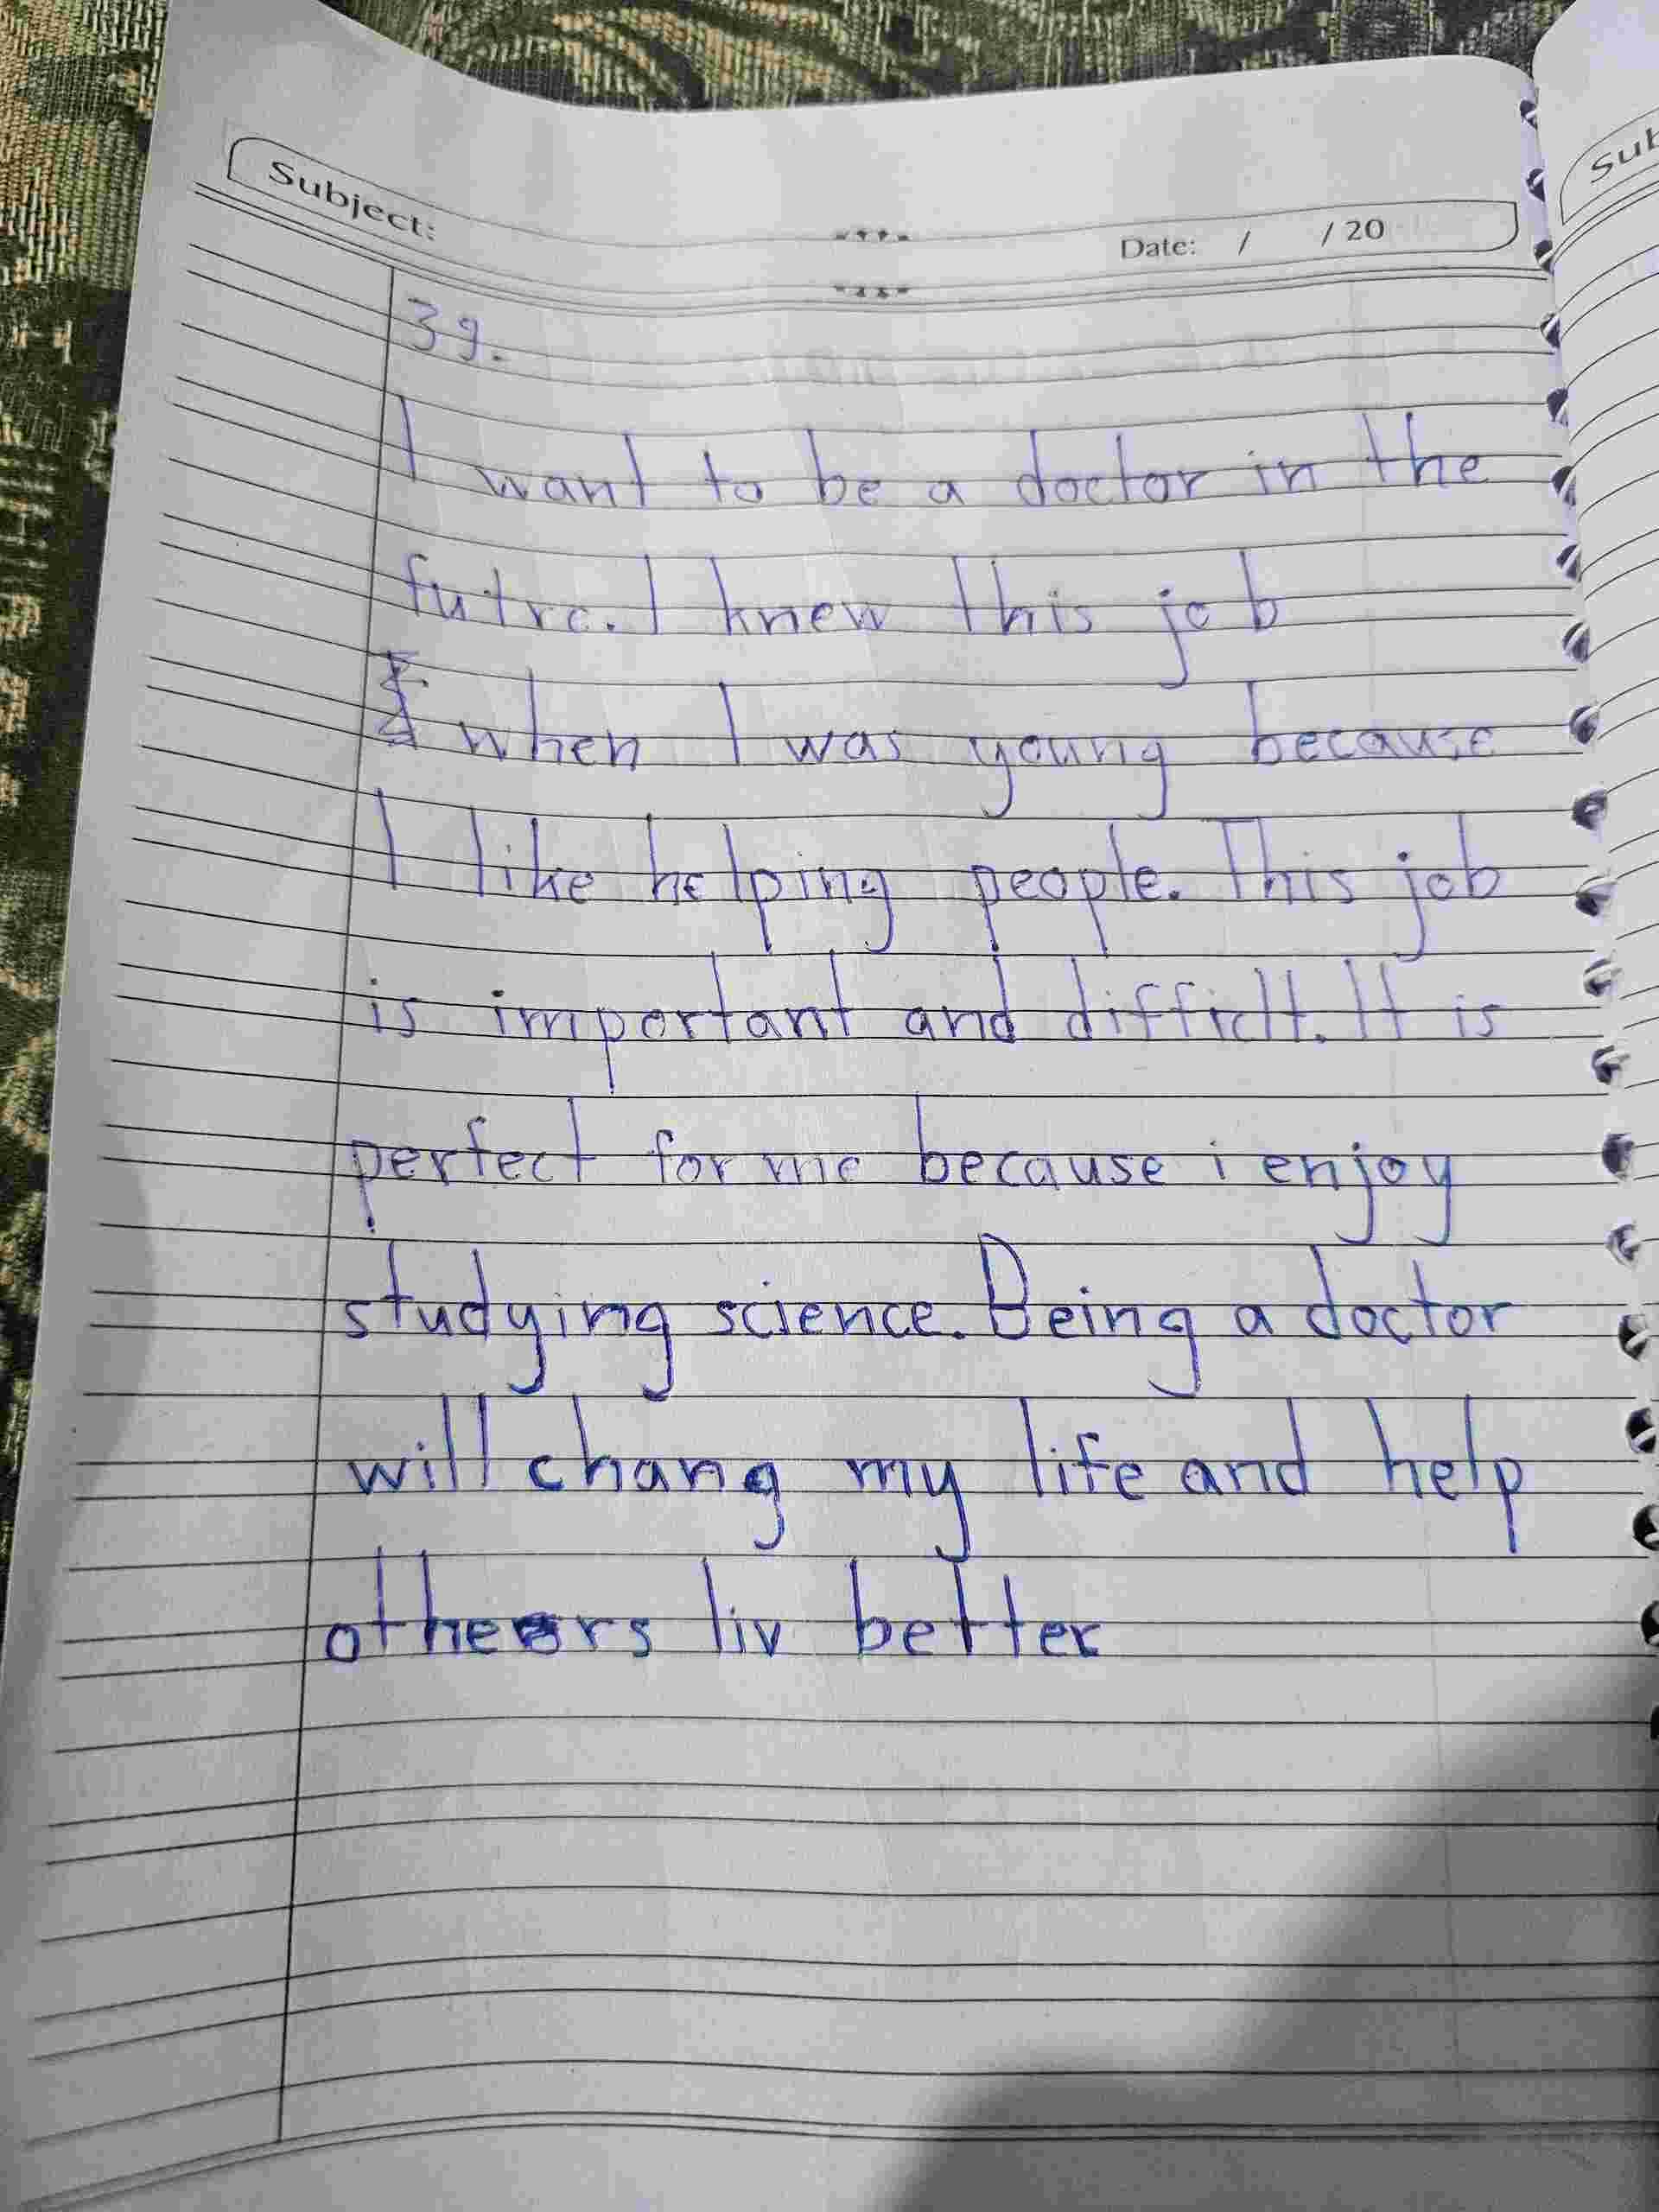 Subject:
Date: / / 20
39.
I want to be a doctor in the
futre. I knew this job
when I was young because
I like helping people. This job
is important and difficlt. It is
perfect for me because i enjoy
studying science. Being a doctor
will chang my life and help
others liv better
Sub